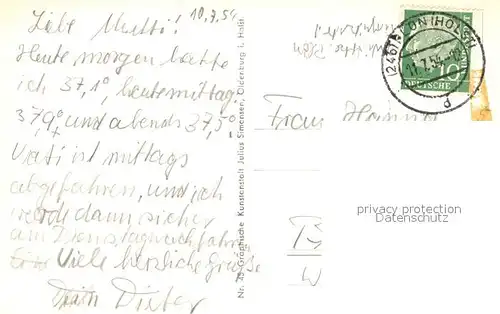 10.7.54
Liebe Mutti!
Heute morgen hatte
ich 37,1°, heute mittag
37,9° und abends 37,5°
Vati ist mittags
abgefahren, und ich
werde dann sicher
am Dienstag nachfahren
Viele herzliche Grüße
Dein Dieter
Nr. 45 Graphische Kunstanstalt Julius Simonsen, Oldenburg i. Holst
(24b) PLÖN (HOLST)
7.54
d
10
DEUTSCHE
Frau
privacy protection
Datenschutz